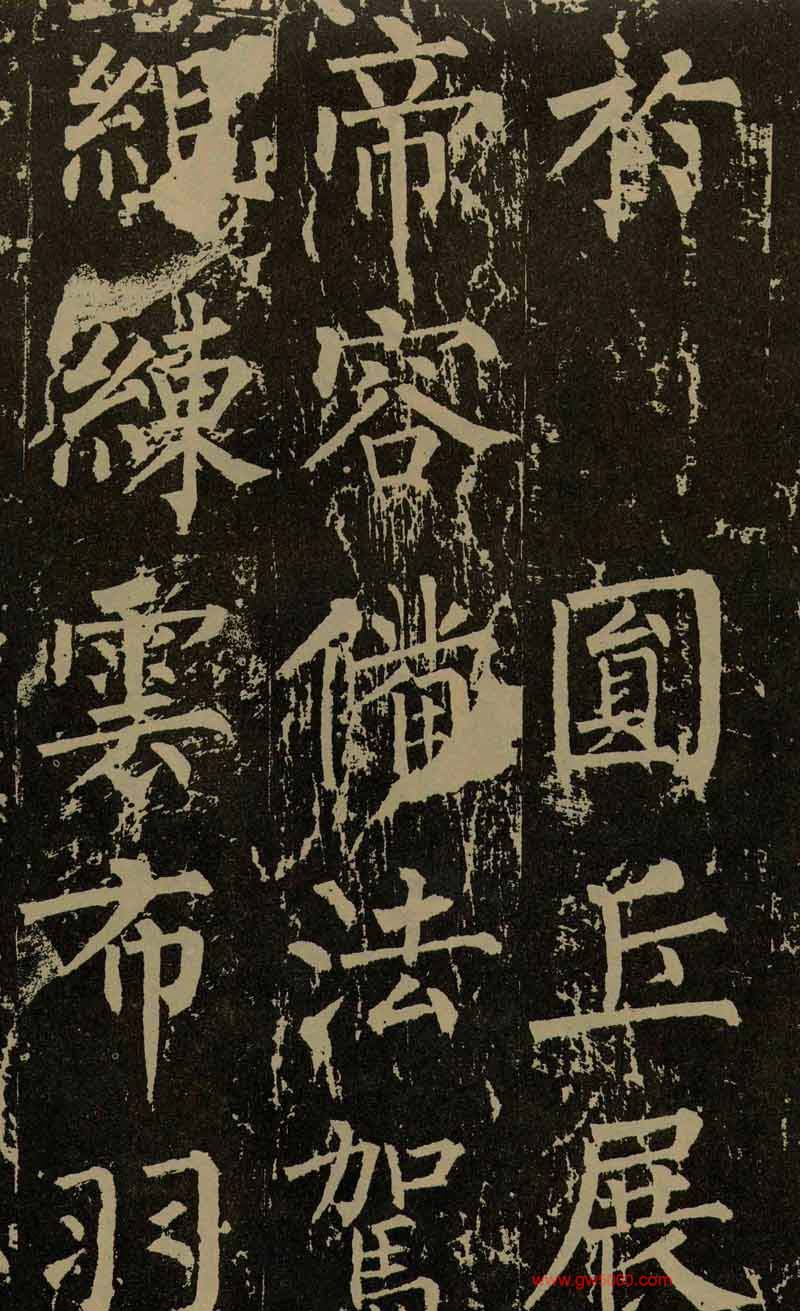 於 圓丘展
帝容備法駕
組練雲布羽
www.gw5000.com